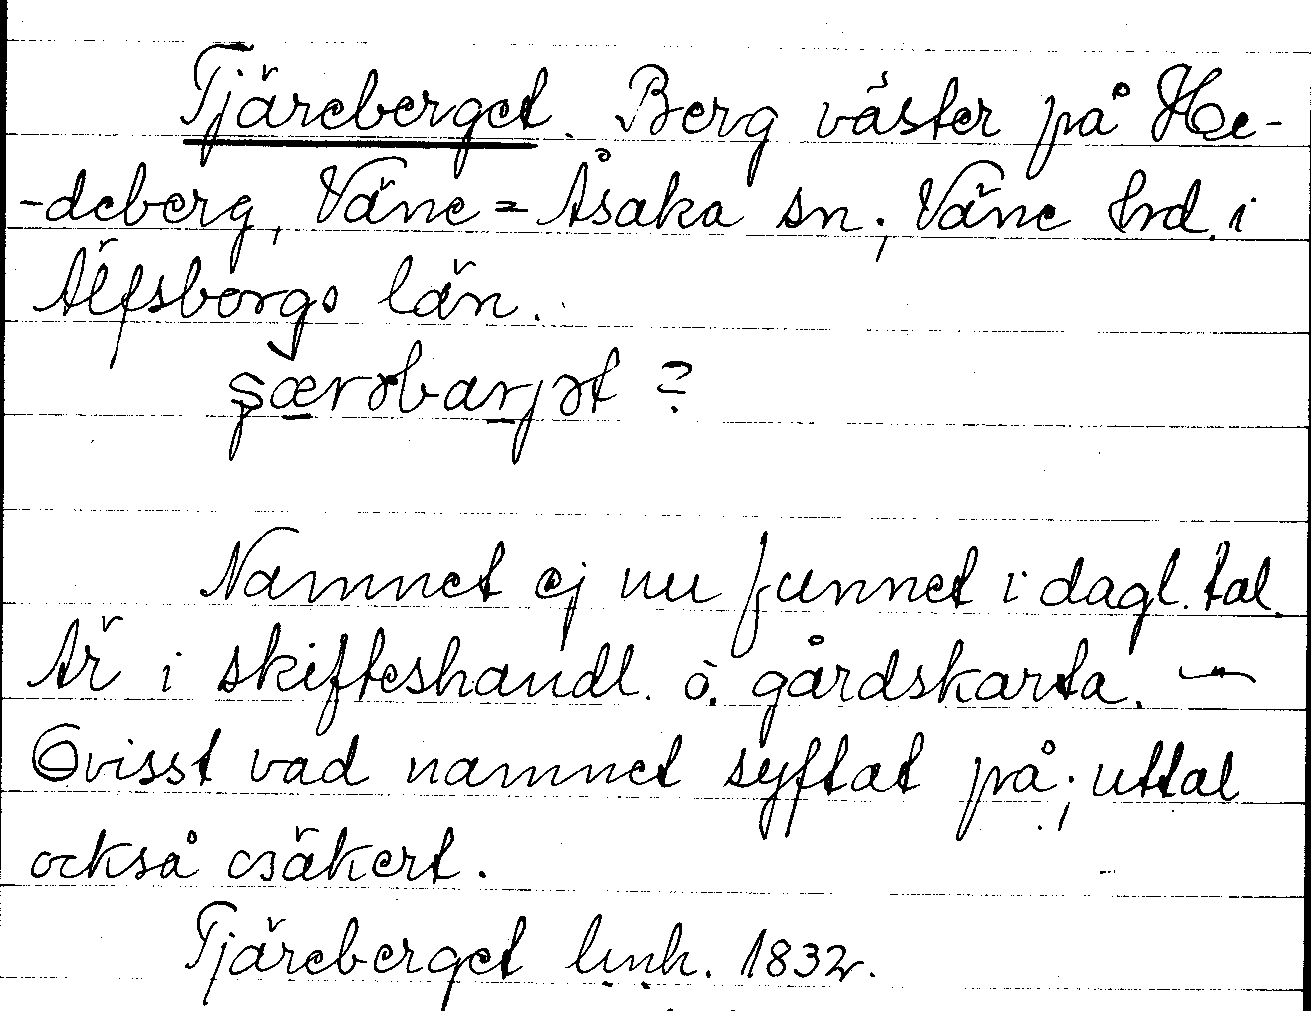 Tjäreberget. Berg väster på He-
-deberg, Väne=Åsaka sn; Väne hrd. i
Älfsborgs län.
şærəbarjət ?
Namnet ej nu funnet i dagl. tal.
Är i skifteshandl. o. gårdskarta. —
Ovisst vad namnet syftat på; uttal
också osäkert.
Tjäreberget lmh. 1832.